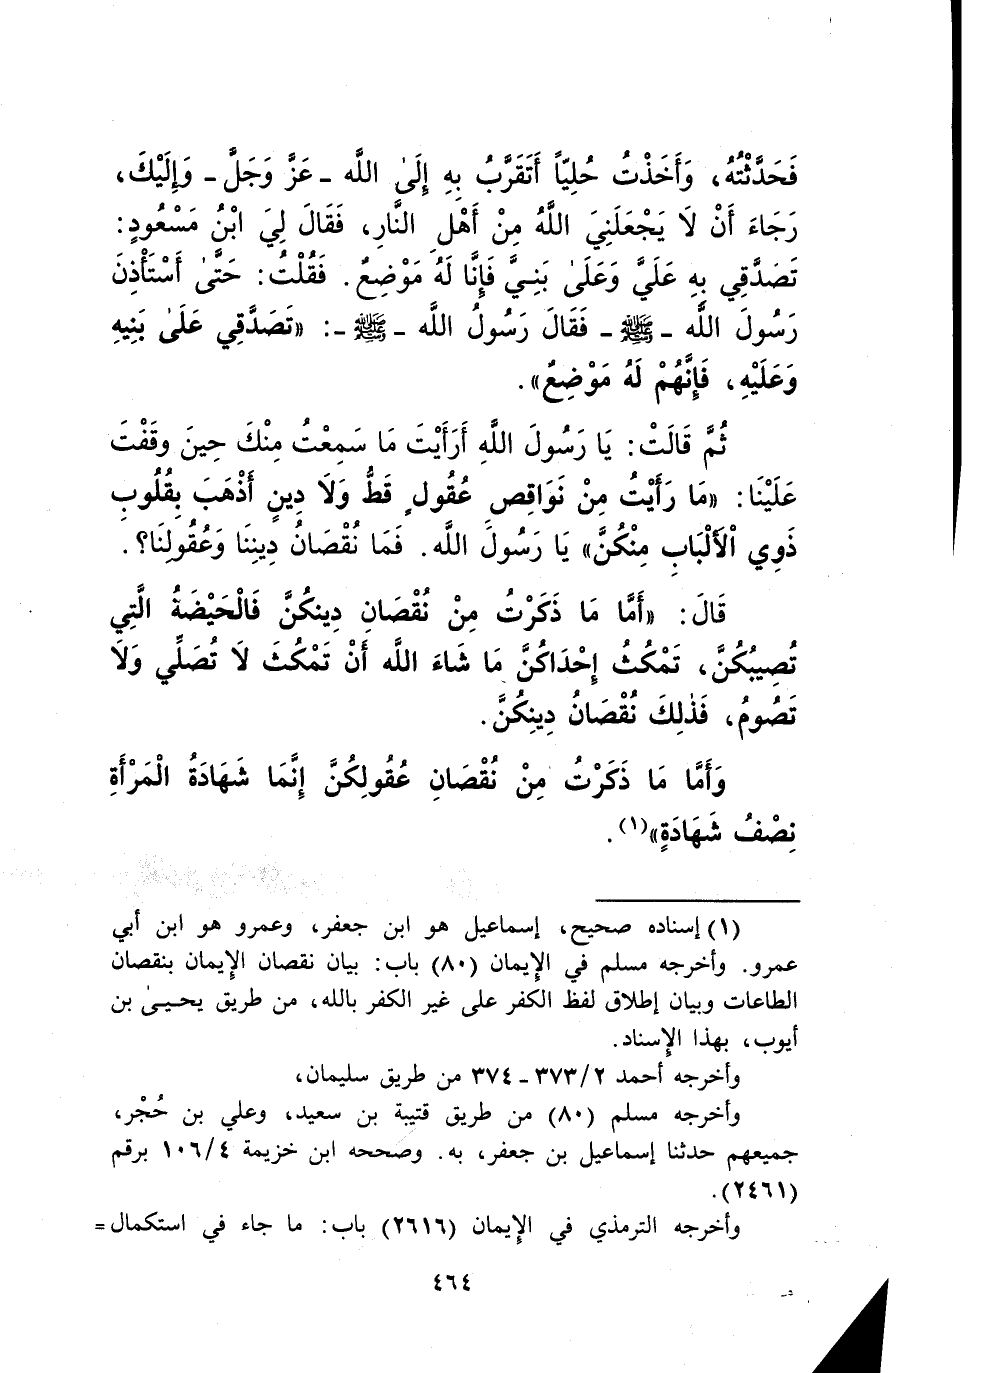 فَحَدَّثْتُهُ، وَأَخَذْتُ حُلِيّاً أَتَقَرَّبُ بِهِ إِلَىٰ اللَّه ـ عَزَّ وَجَلَّ ـ وَإِلَيْكَ،
رَجَاءَ أَنْ لَا يَجْعَلَنِيَ اللَّهُ مِنْ أَهْلِ النَّارِ، فَقَالَ لِيَ ابْنُ مَسْعُودٍ:
تَصَدَّقِي بِهِ عَلَيَّ وَعَلَىٰ بَنِيَّ فَإِنَّا لَهُ مَوْضِعٌ. فَقُلْتُ: حَتَّىٰ أَسْتَأْذِنَ
رَسُولَ اللَّه ـ ﷺ ـ فَقَالَ رَسُولُ اللَّه ـ ﷺ ـ: «تَصَدَّقِي عَلَىٰ بَنِيهِ
وَعَلَيْهِ، فَإِنَّهُمْ لَهُ مَوْضِعٌ».
ثُمَّ قَالَتْ: يَا رَسُولَ اللَّهِ أَرَأَيْتَ مَا سَمِعْتُ مِنْكَ حِينَ وَقَفْتَ
عَلَيْنَا: «مَا رَأَيْتُ مِنْ نَوَاقِصِ عُقُولٍ قَطُّ وَلَا دِينٍ أَذْهَبَ بِقُلُوبِ
ذَوِي الْأَلْبَابِ مِنْكُنَّ» يَا رَسُولَ اللَّه. فَمَا نُقْصَانُ دِينِنَا وَعُقُولِنَا؟.
قَالَ: «أَمَّا مَا ذَكَرْتُ مِنْ نُقْصَانِ دِينِكُنَّ فَالْحَيْضَةُ الَّتِي
تُصِيبُكُنَّ، تَمْكُثُ إِحْدَاكُنَّ مَا شَاءَ اللَّه أَنْ تَمْكُثَ لَا تُصَلِّي وَلَا
تَصُومُ، فَذٰلِكَ نُقْصَانُ دِينِكُنَّ.
وَأَمَّا مَا ذَكَرْتُ مِنْ نُقْصَانِ عُقُولِكُنَّ إِنَّمَا شَهَادَةُ الْمَرْأَةِ
نِصْفُ شَهَادَةٍ»(١).
(١) إسناده صحيح، إسماعيل هو ابن جعفر، وعمرو هو ابن أبي
عمرو. وأخرجه مسلم في الإيمان (٨٠) باب: بيان نقصان الإيمان بنقصان
الطاعات وبيان إطلاق لفظ الكفر على غير الكفر بالله، من طريق يحيىٰ بن
أيوب، بهذا الإسناد.
وأخرجه أحمد ٢/ ٣٧٣ ـ ٣٧٤ من طريق سليمان،
وأخرجه مسلم (٨٠) من طريق قتيبة بن سعيد، وعلي بن حُجْر،
جميعهم حدثنا إسماعيل بن جعفر، به. وصححه ابن خزيمة ٤/ ١٠٦ برقم
(٢٤٦١).
وأخرجه الترمذي في الإيمان (٢٦١٦) باب: ما جاء في استكمال =
٤٦٤